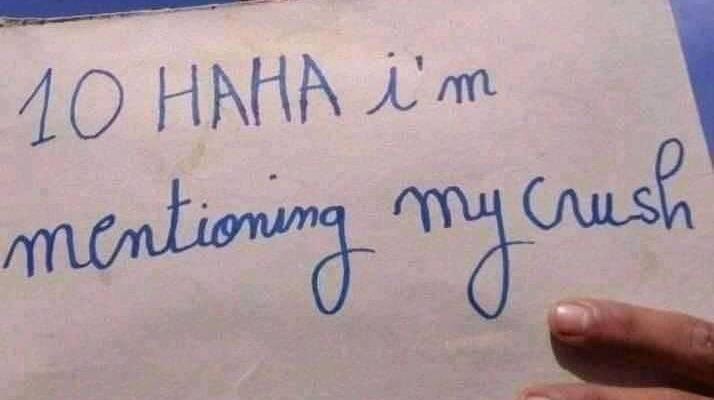 10 HAHA i'm
mentioning my crush